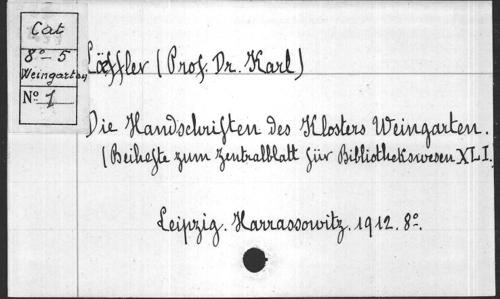 Cat
8º - 5
Weingarten
Nº 1
Löffler (Prof. Dr. Karl)
Die Handschriften des Klosters Weingarten.
(Beihefte zum Zentralblatt für Bibliothekswesen XLI.)
Leipzig. Harrassowitz. 1912. 8º.